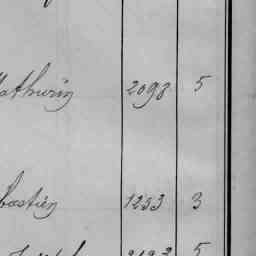 athurin 2098 5
bastien 1233 3
5